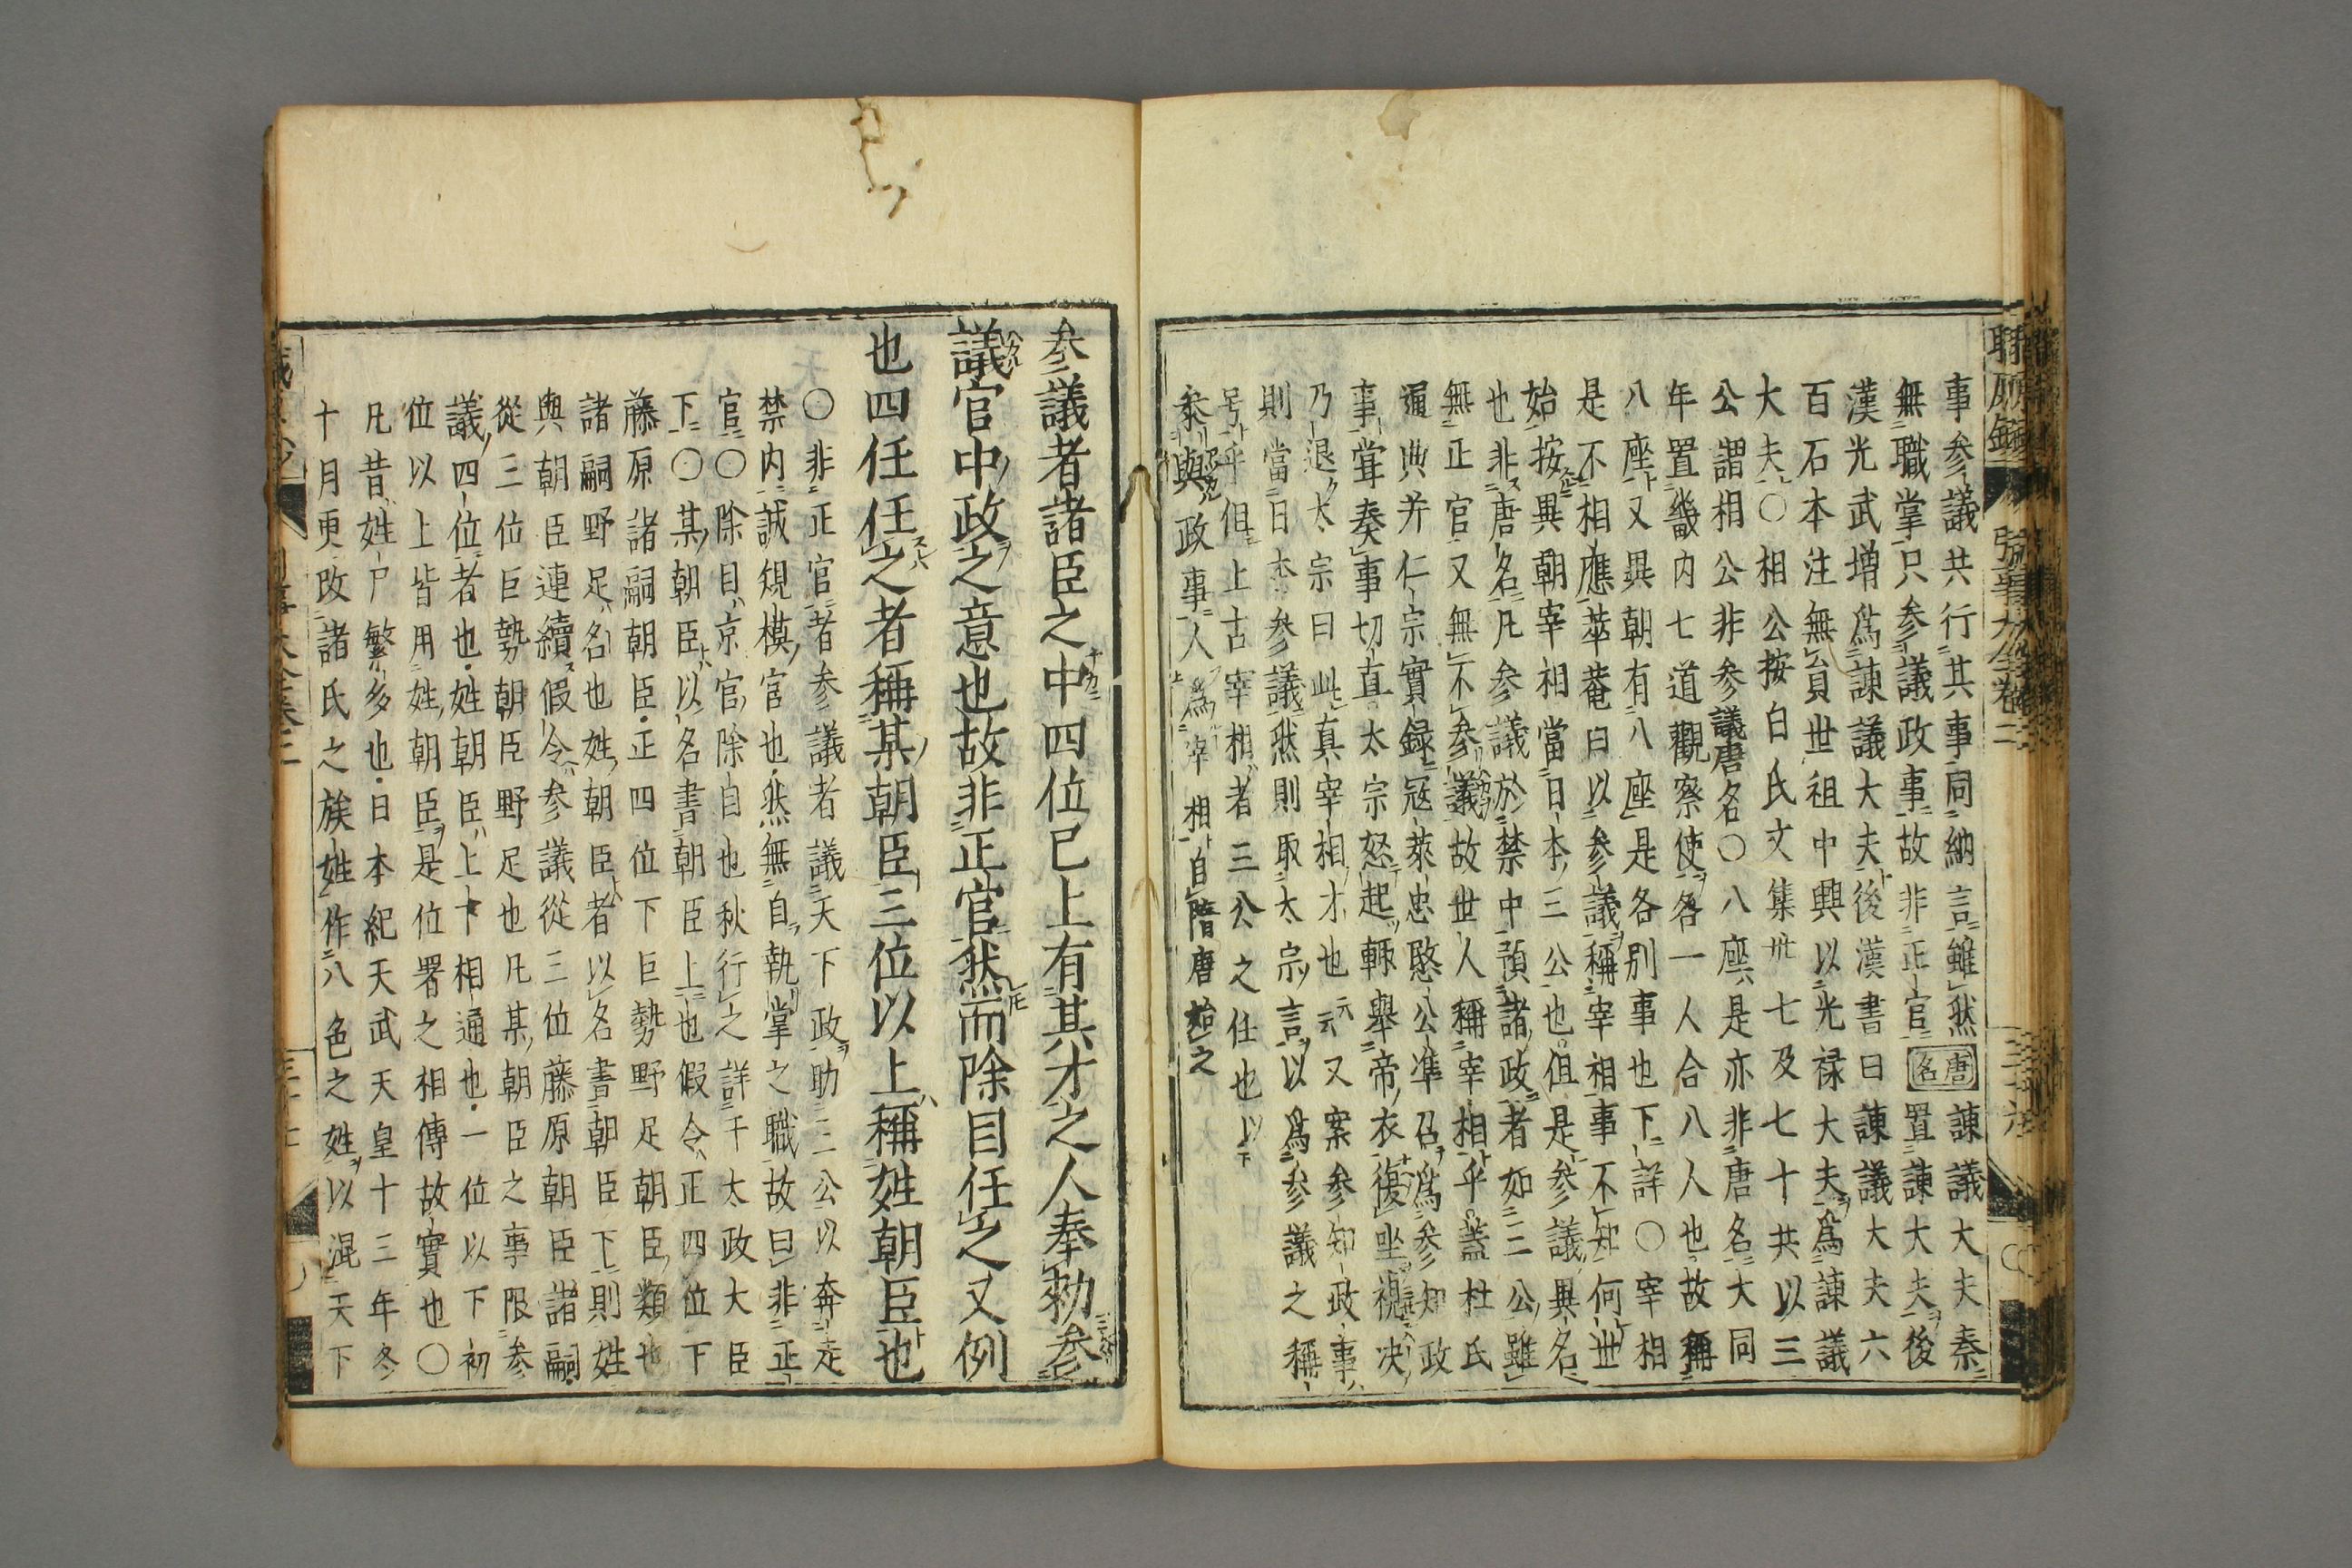 事参議共行其事同納言雖然唐名諫議大夫秦
無職掌只参議政事故非正官置諫大夫後
漢光武増爲諫議大夫後漢書曰諫議大夫六
百石本注無員世祖中興以光禄大夫爲諫議
大夫〇相公按白氏文集卅七及七十共以三
公謂相公非参議唐名〇八座是亦非唐名大同
年置畿内七道觀察使各一人合八人也故稱
八座又異朝有八座是各別事也下詳〇宰相
是不相應萃菴曰以参議稱宰相事不知何世
始按異朝宰相當日本三公也但是参議異名
也非唐名凡参議於禁中預諸政者如二公雖
無正官又無不参議故世人稱宰相乎蓋杜氏
通典并仁宗實録冦萊忠愍公準召爲参知政
事甞奏事切直太宗怒起輙舉帝衣復坐視决
乃退太宗曰此真宰相才也云云又案参知政事
則當日本参議然則取太宗言以爲参議之稱
号乎但上古宰相者三公之任也以下
参與政事人爲宰相自隋唐始之
参議者諸臣之中四位已上有其才之人奉勅参
議官中政之意也故非正官然而除目任之又例
也四任任之者稱某朝臣三位以上稱姓朝臣也
〇非正官者参議者議天下政助三公以奔走
禁内誠規模官也然無自執掌之職故曰非正
官〇除目京官除自也秋行之詳于太政大臣
下〇某朝臣以名書朝臣上也假令正四位下
藤原諸嗣朝臣正四位下巨勢野足朝臣類也
諸嗣野足名也姓朝臣者以名書朝臣下則姓
與朝臣連續假令参議從三位藤原朝臣諸嗣
從三位巨勢朝臣野足也凡某朝臣之事限参
議四位者也姓朝臣上下相通也一位以下初
位以上皆用姓朝臣是位署之相傳故實也〇
凡昔姓尸繁多也日本紀天武天皇十三年冬
十月更改諸氏之族姓作八色之姓以混天下